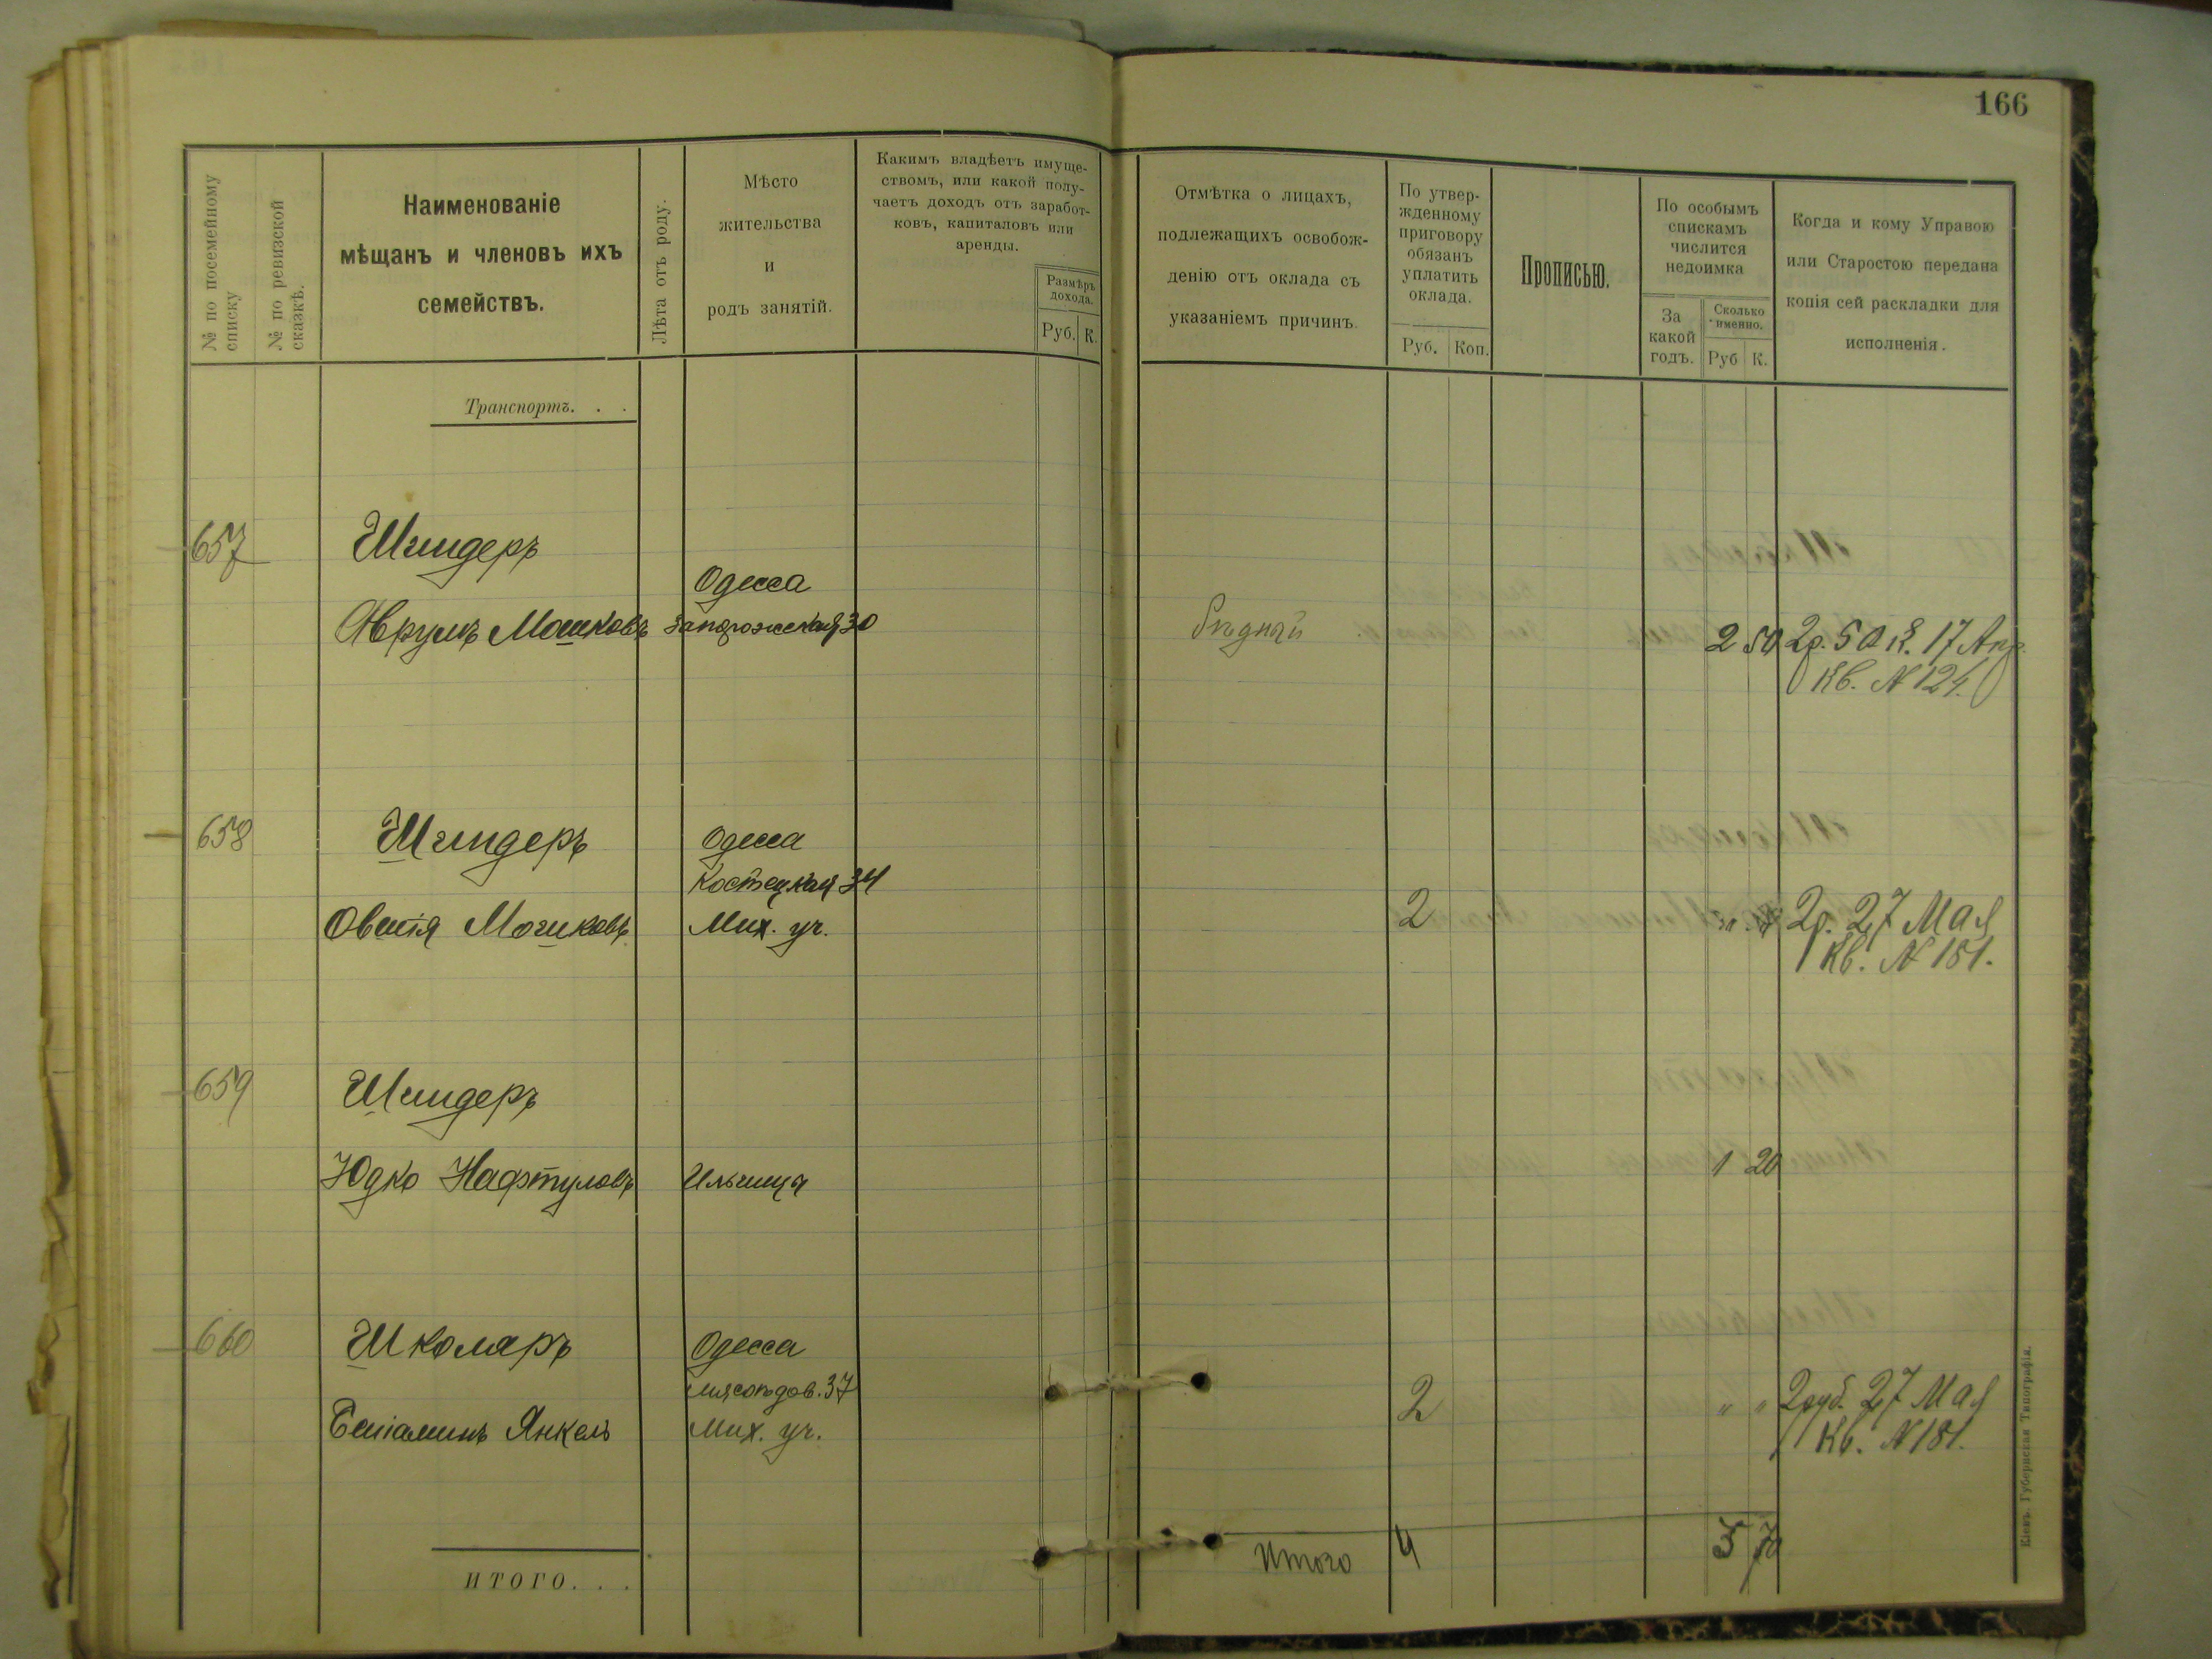 166
№ по посемейному списку
№ по ревизской сказкѣ.
Наименованіе
мѣщанъ и членовъ ихъ
семействъ.
Лѣта отъ роду.
Мѣсто
жительства
и
родъ занятій.
Какимъ владѣетъ имуще-
ствомъ, или какой полу-
чаетъ доходъ отъ заработ-
ковъ, капиталовъ или
аренды.
Размѣръ
дохода.
Руб. К.
Отмѣтка о лицахъ,
подлежащихъ освобож-
денію отъ оклада съ
указаніемъ причинъ.
По утвер-
жденному
приговору
обязанъ
уплатить
оклада.
Руб. Коп.
Прописью.
По особымъ
спискамъ
числится
недоимка
За
какой
годъ.
Сколько
именно.
Руб К.
Когда и кому Управою
или Старостою передана
копія сей раскладки для
исполненія.
Транспортъ. . .
657 Шпидеръ
Одесса
Аврумъ Мошковъ Запорожская 30 Бѣдный 2 50 2р. 50 к. 17 Апр.
Кв. № 124.
658 Шпидеръ Одесса
Костецкая 34
Овшія Мошковъ Мих. уч. 2 2р. 27 Мая
Кв. № 181.
659 Шпидеръ
Юдко Нафтуловъ Ильинцы 1 20
660 Школяръ Одесса
Мясоѣдов. 37
Беніаминъ Янкель Мих. уч. 2 " " 2 руб. 27 Мая
Кв. № 181.
Итого 4 3 70
ИТОГО. . .
Кіевъ. Губернская Типографія.